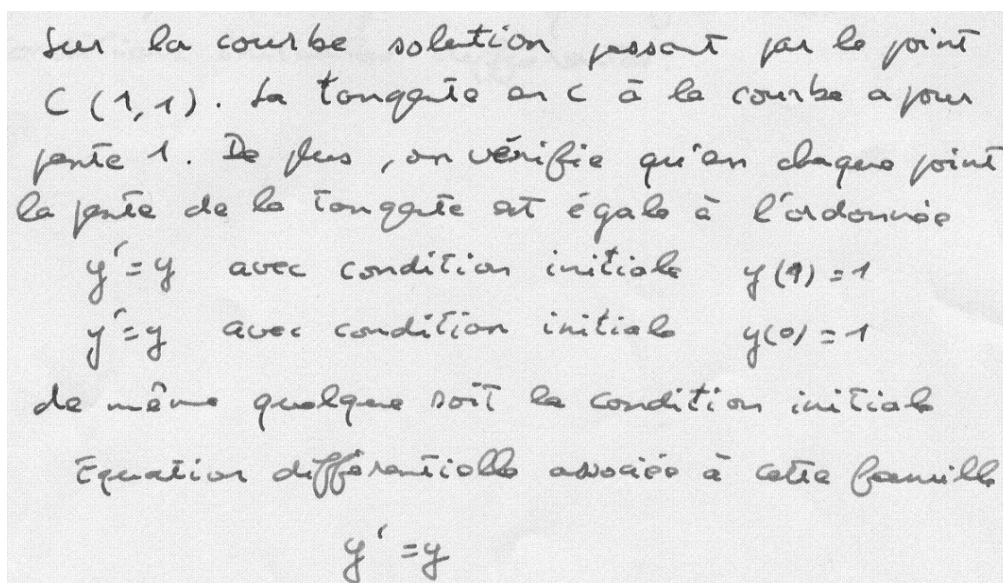 Sur la courbe solution passant par le point
C (1,1). La tangente en C à la courbe a pour
pente 1. De plus, on vérifie qu'en chaque point
la pente de la tangente est égale à l'ordonnée
y' = y avec condition initiale y(1) = 1
y' = y avec condition initiale y(0) = 1
de même quelque soit la condition initiale
Equation différentielle associée à cette famille
y' = y